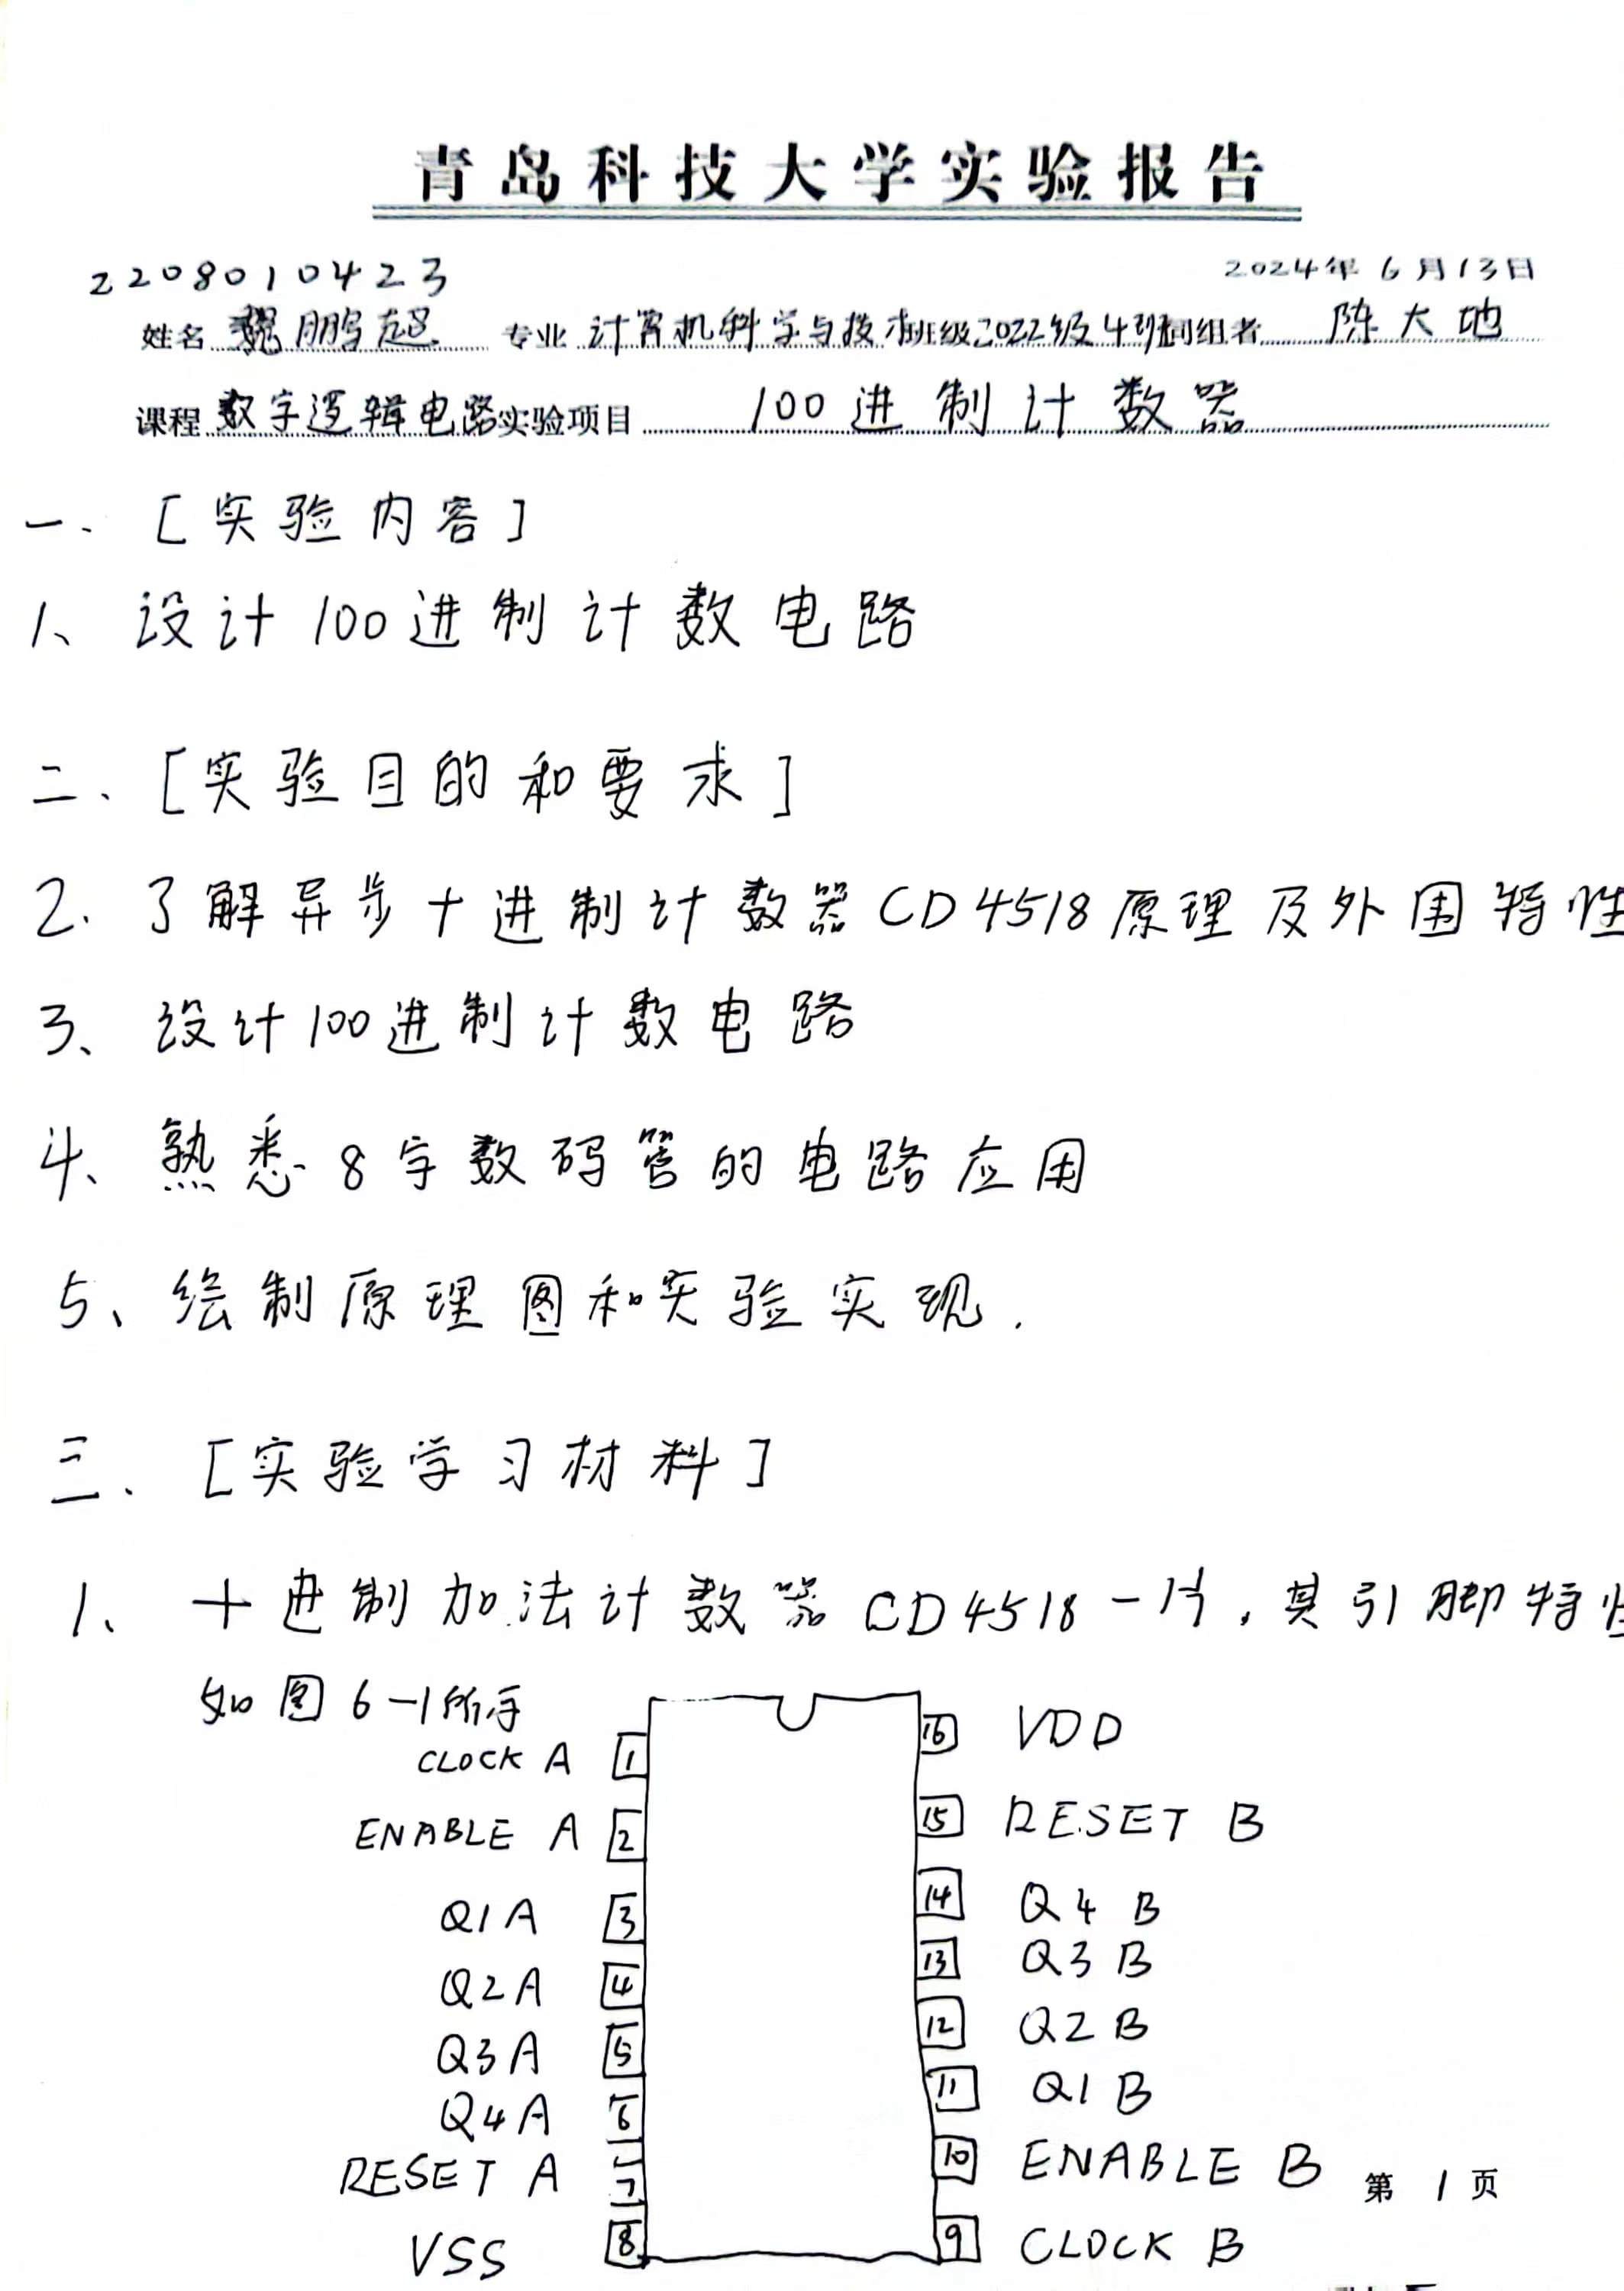 青岛科技大学实验报告
2208010423 2024年6月13日
姓名 魏鹏超 专业 计算机科学与技术 班级 2022级4班 同组者 陈大地
课程 数字逻辑电路 实验项目 100进制计数器
一、[实验内容]
1、设计100进制计数电路
二、[实验目的和要求]
2、了解异步十进制计数器CD4518原理及外围特性
3、设计100进制计数电路
4、熟悉8字数码管的电路应用
5、绘制原理图和实验实现.
三、[实验学习材料]
1、十进制加法计数器CD4518一片,其引脚特性
如图6-1所示
CLOCK A 1 16 VDD
ENABLE A 2 15 RESET B
Q1A 3 14 Q4B
Q2A 4 13 Q3B
Q3A 5 12 Q2B
Q4A 6 11 Q1B
RESET A 7 10 ENABLE B
VSS 8 9 CLOCK B
第1页